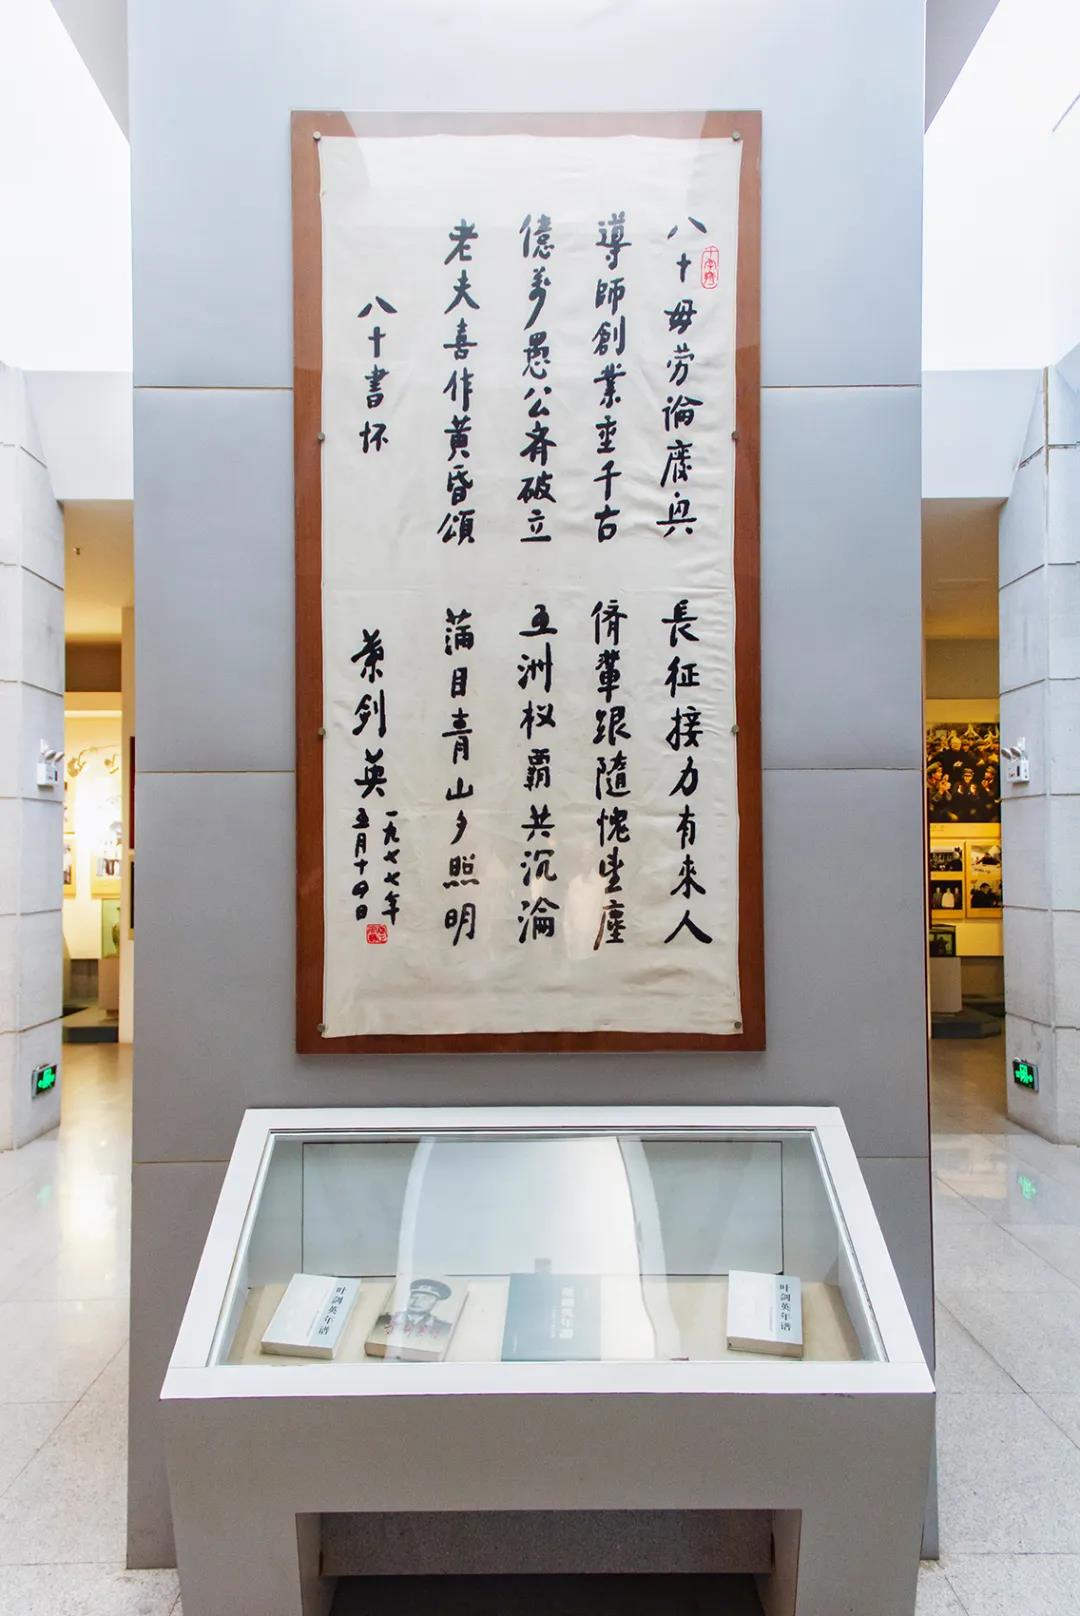 八十毋劳論廢興
長征接力有來人
導師創業垂千古
儕輩跟隨愧望塵
億萬愚公齐破立
五洲权霸共沉淪
老夫喜作黄昏頌
滿目青山夕照明
八十書怀
葉剑英
一九七七年
五月十四日
叶剑英年谱
叶剑英年谱